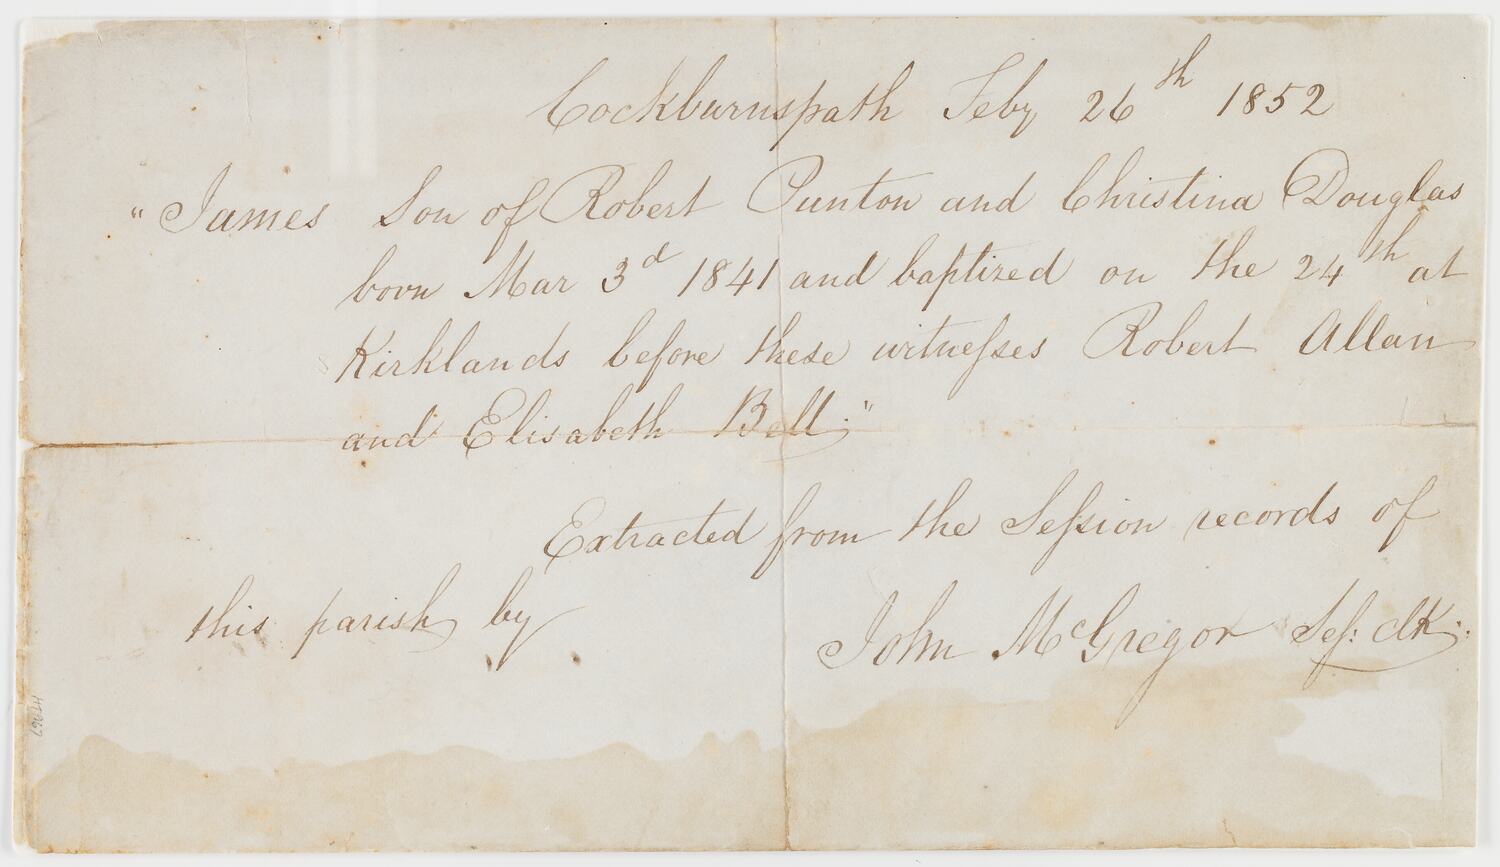 Cockburnspath Feby 26th 1852
"James Son of Robert Punton and Christina Douglas
born Mar 3d 1841 and baptized on the 24th at
Kirklands before these witneſses Robert Allan
and Elisabeth Bell."
Extracted from the Seſsion records of
this parish by
John McGregor Seſ: clk.